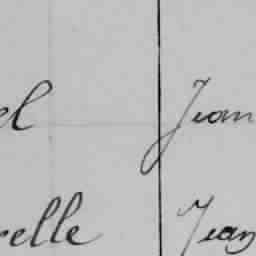 el Jean
relle Jean